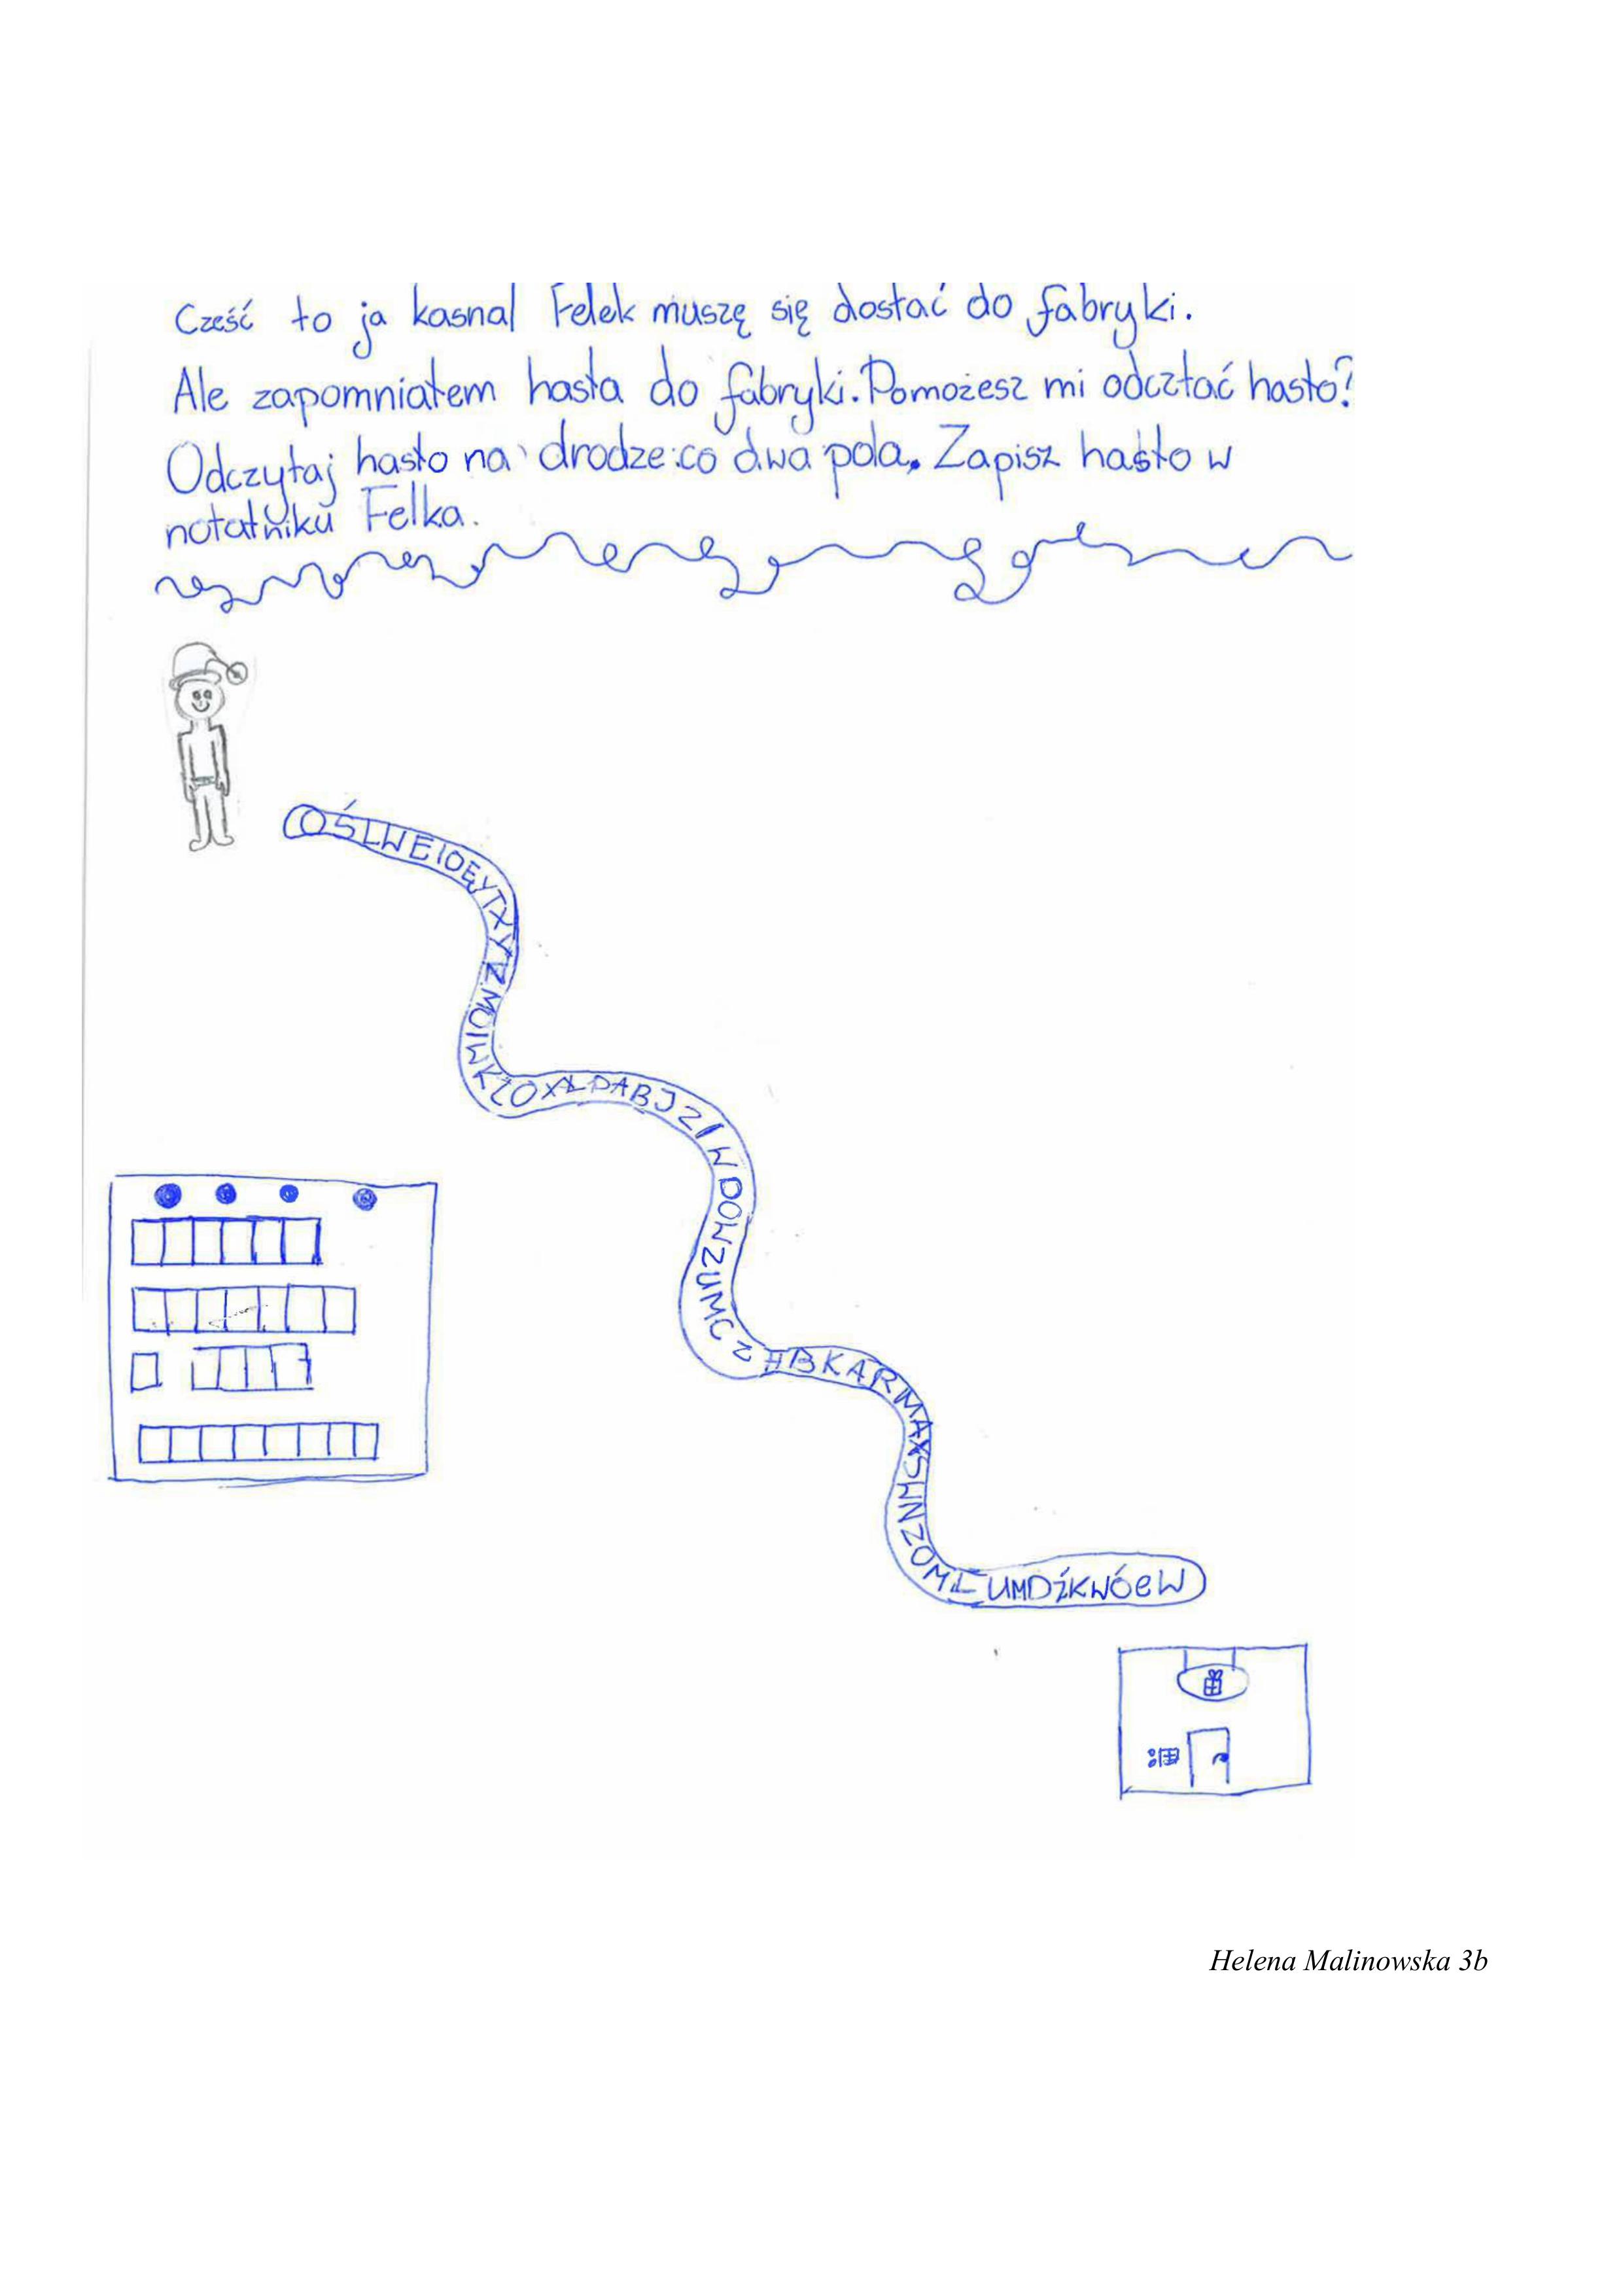 Cześć to ja kasnal Felek muszę się dostać do fabryki.
Ale zapomniałem hasła do fabryki. Pomożesz mi odcztać hasło?
Odczytaj hasło na drodze:co dwa pola. Zapisz hasło w
notatniku Felka.
Helena Malinowska 3b